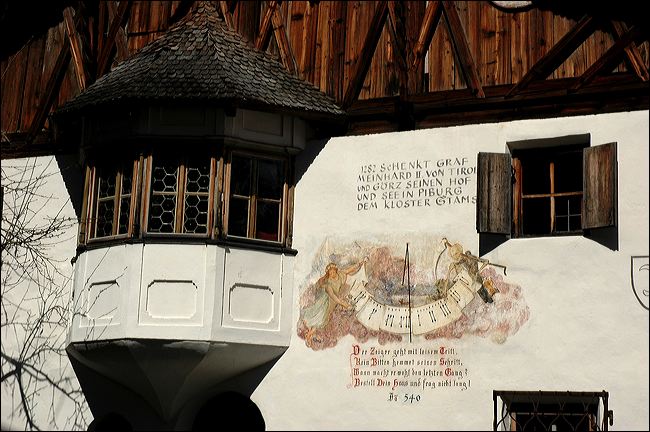 1282 SCHENKT GRAF
MEINHARD II. VON TIROL
UND GÖRZ SEINEN HOF
UND SEE IN PIBURG
DEM KLOSTER STAMS
Der Zeiger geht mit leisem Tritt,
Kein Bitten hemmet seinen Schritt,
Wann macht er wohl den letzten Gang?
Bestell Dein Haus und frag nicht lang!
540